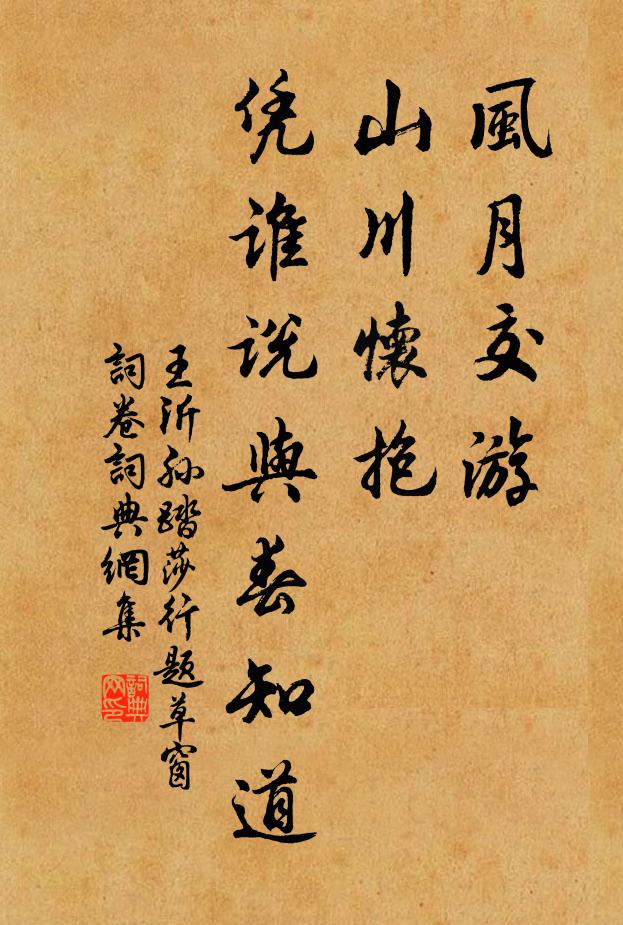 風月交游
山川懷抱
凭谁说與春知道
王沂孙踏莎行题草窗
詞卷詞典網集
詞典
网印